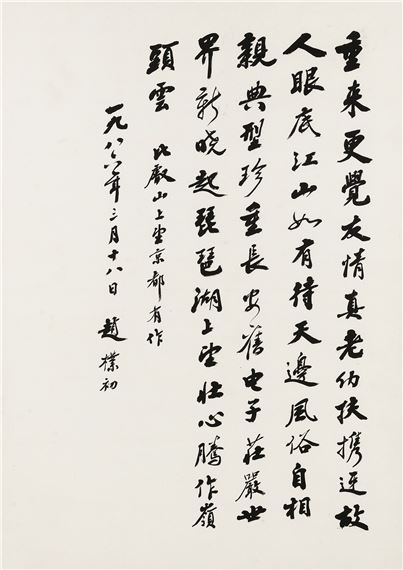 重来更覺友情真老仍扶携迓故
人眼底江山如有待天邊風俗自相
親典型珍重長安舊电子莊嚴世
界新曉起琵琶湖上望壮心騰作嶺
頭雲 比叡山上望京都有作
一九八六年三月十八日 趙樸初